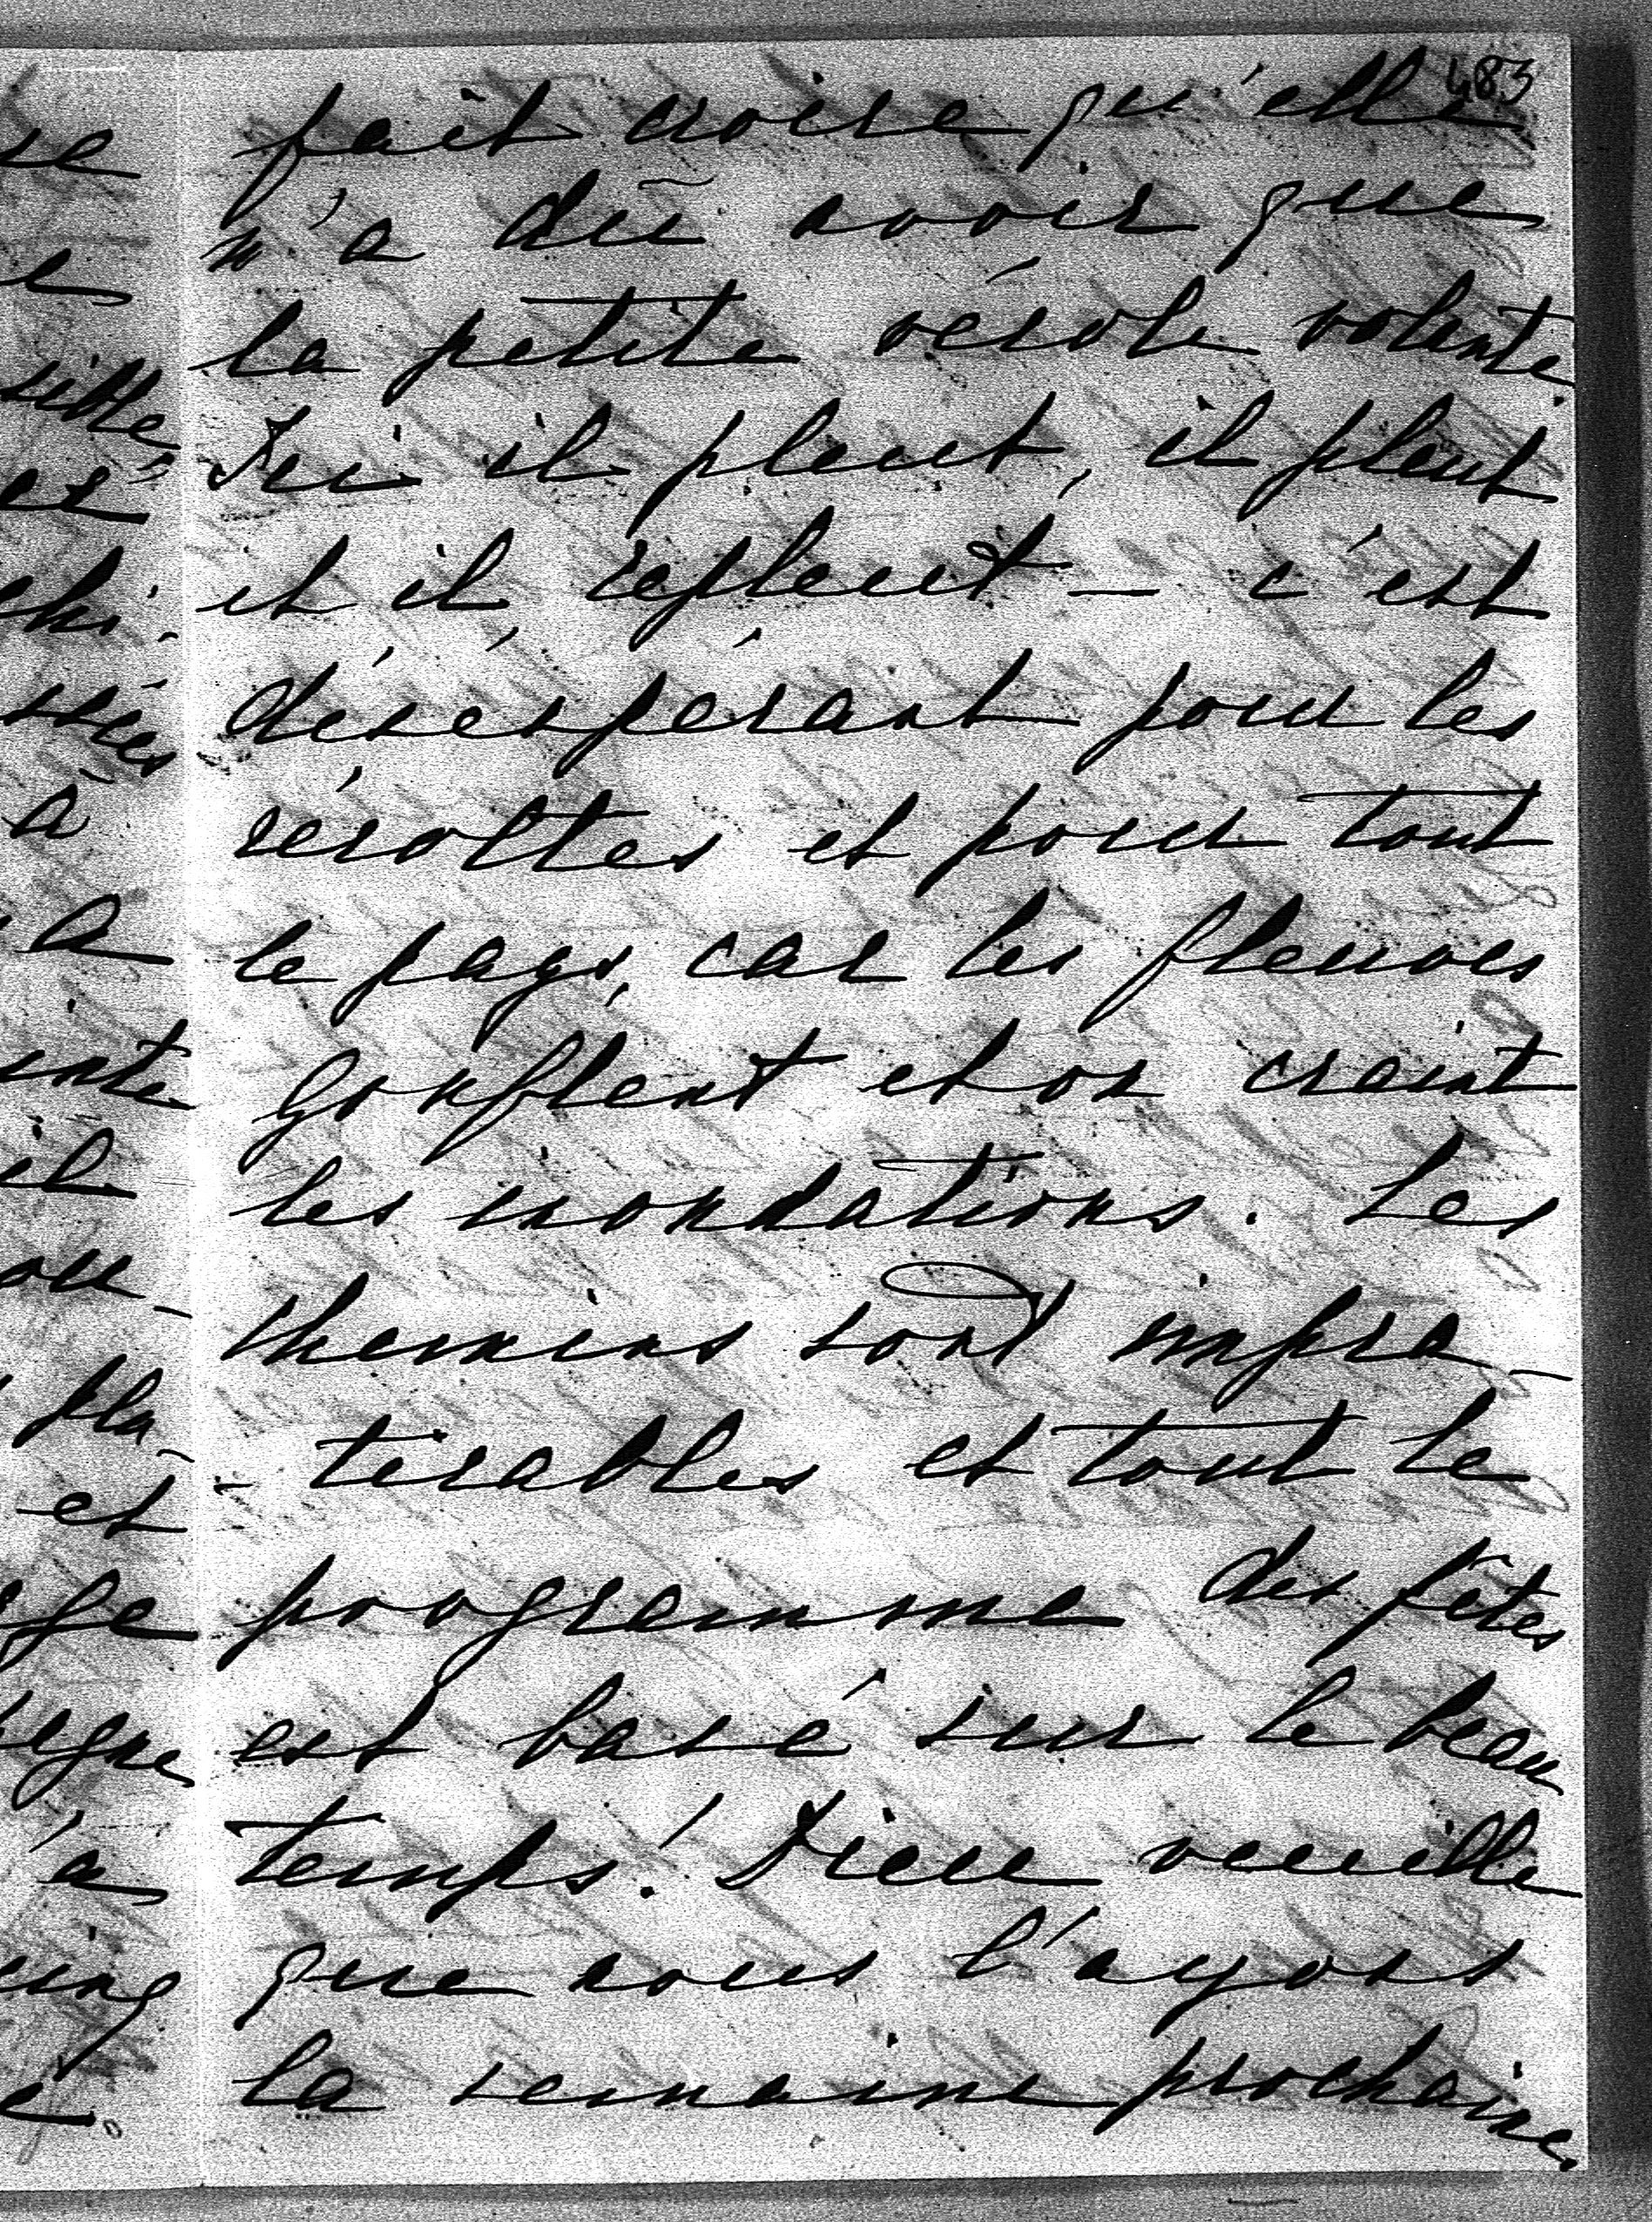 483
fait croire qu'elle
n'a dû avoir que
la petite vérole volante.
Ici il pleut, il pleut
et il repleut — c'est
désespérant pour les
récoltes et pour tout
le pays, car les fleuves
gonflent et on craint
les inondations. Les
chemins sont impra-
-ticables et tout le
programme des fêtes
est basé sur le beau
temps! Dieu veuille
que nous l'ayons
la semaine prochaine.